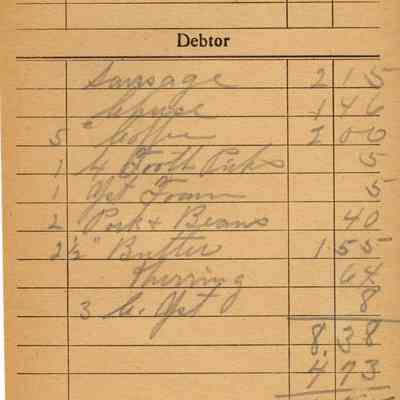 Debtor
Sausage 2 15
Cheese 1 46
5 " Coffee 2 00
1 4 Tooth Picks 5
1 Yst Foam 5
2 Pork & Beans 40
2½ " Butter 1.55
Herring 64
3 C. Yst 8
8.38
4 73